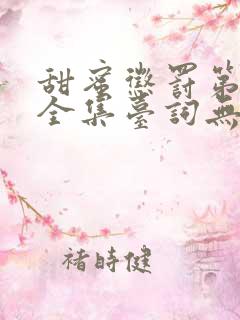 甜蜜懲罰第
全集臺詞無
褚時健